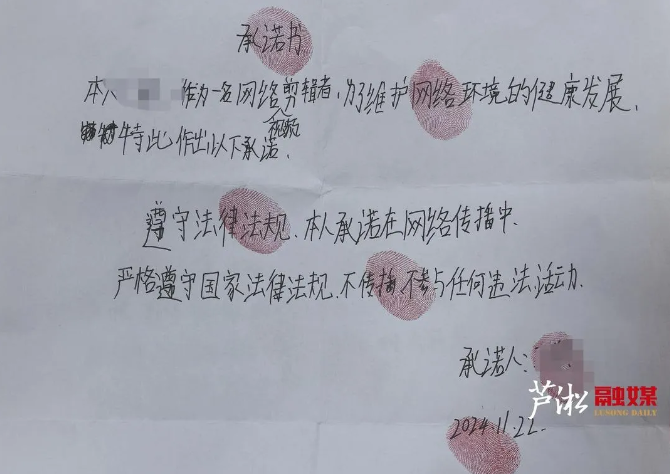 承诺书
本人 作为一名网络视频剪辑者，为了维护网络环境的健康发展，
特此作出以下承诺．
遵守法律法规、本人承诺在网络传播中．
严格遵守国家法律法规、不传播、不参与任何违法活动．
承诺人：
2024.11.22.
芦淞融媒
LUSONG DAILY